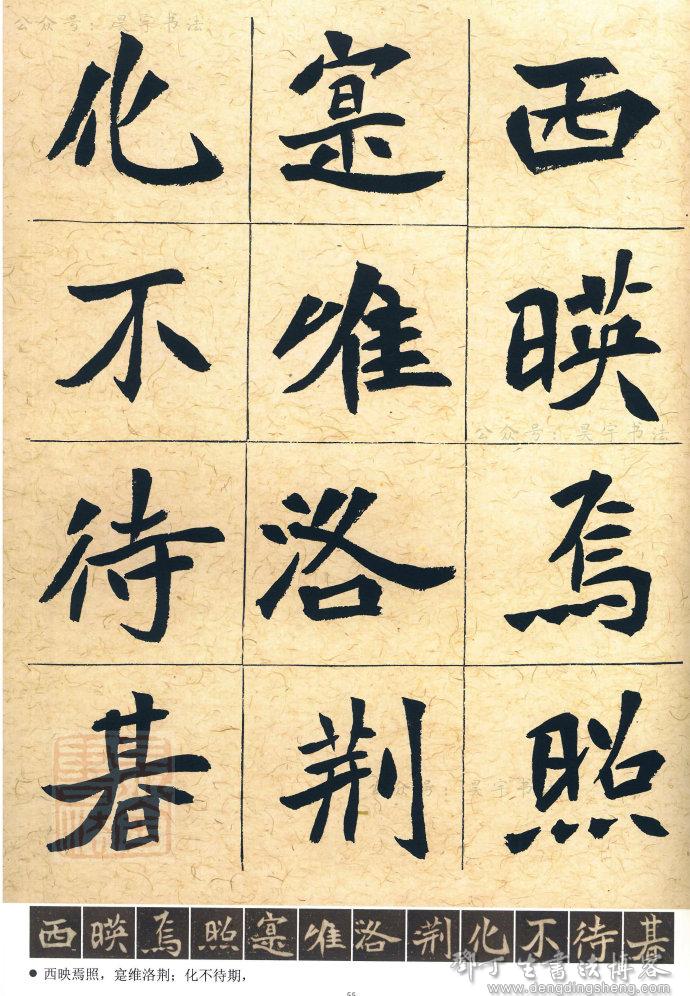 公众号：昊宇书法
西暎焉照
寔唯洛荆
化不待㫷
公众号：昊宇书法
公众号：昊宇书
西暎焉照寔唯洛荆化不待㫷
● 西映焉照，寔维洛荆；化不待期，
55
邓丁生書法博客
www.dengdingsheng.com